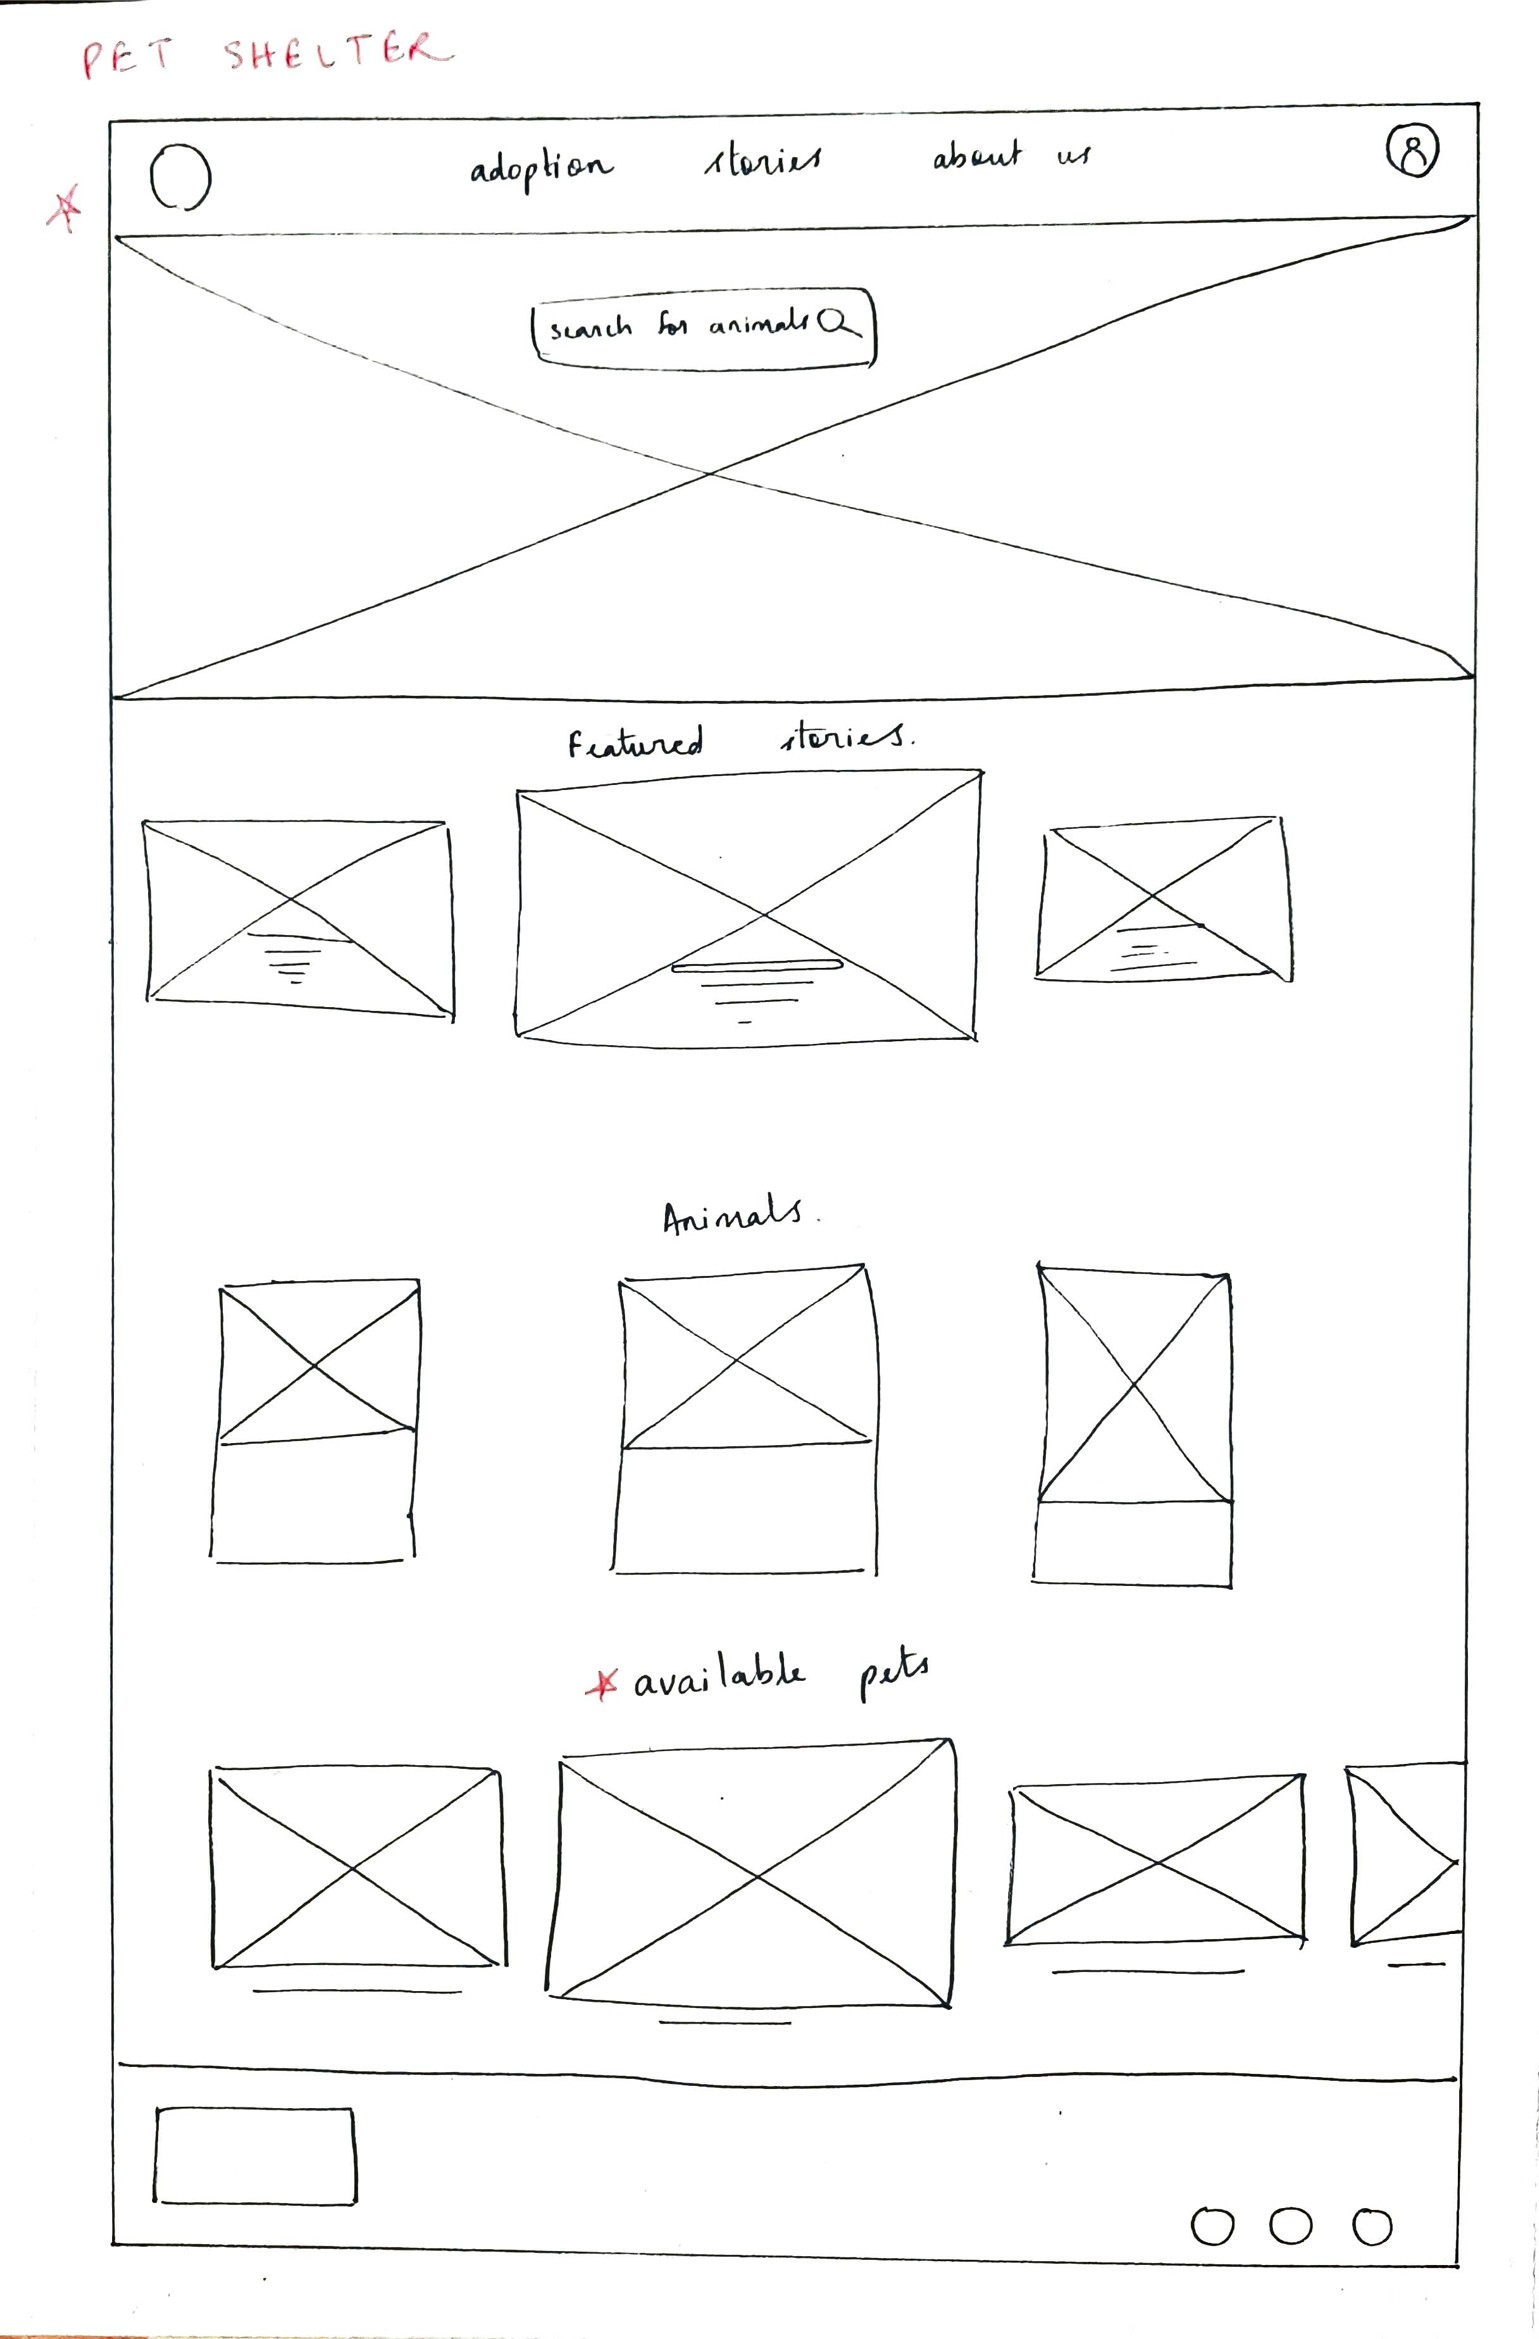 PET SHELTER
adoption stories about us
search for animals
Featured stories.
Animals.
available pets